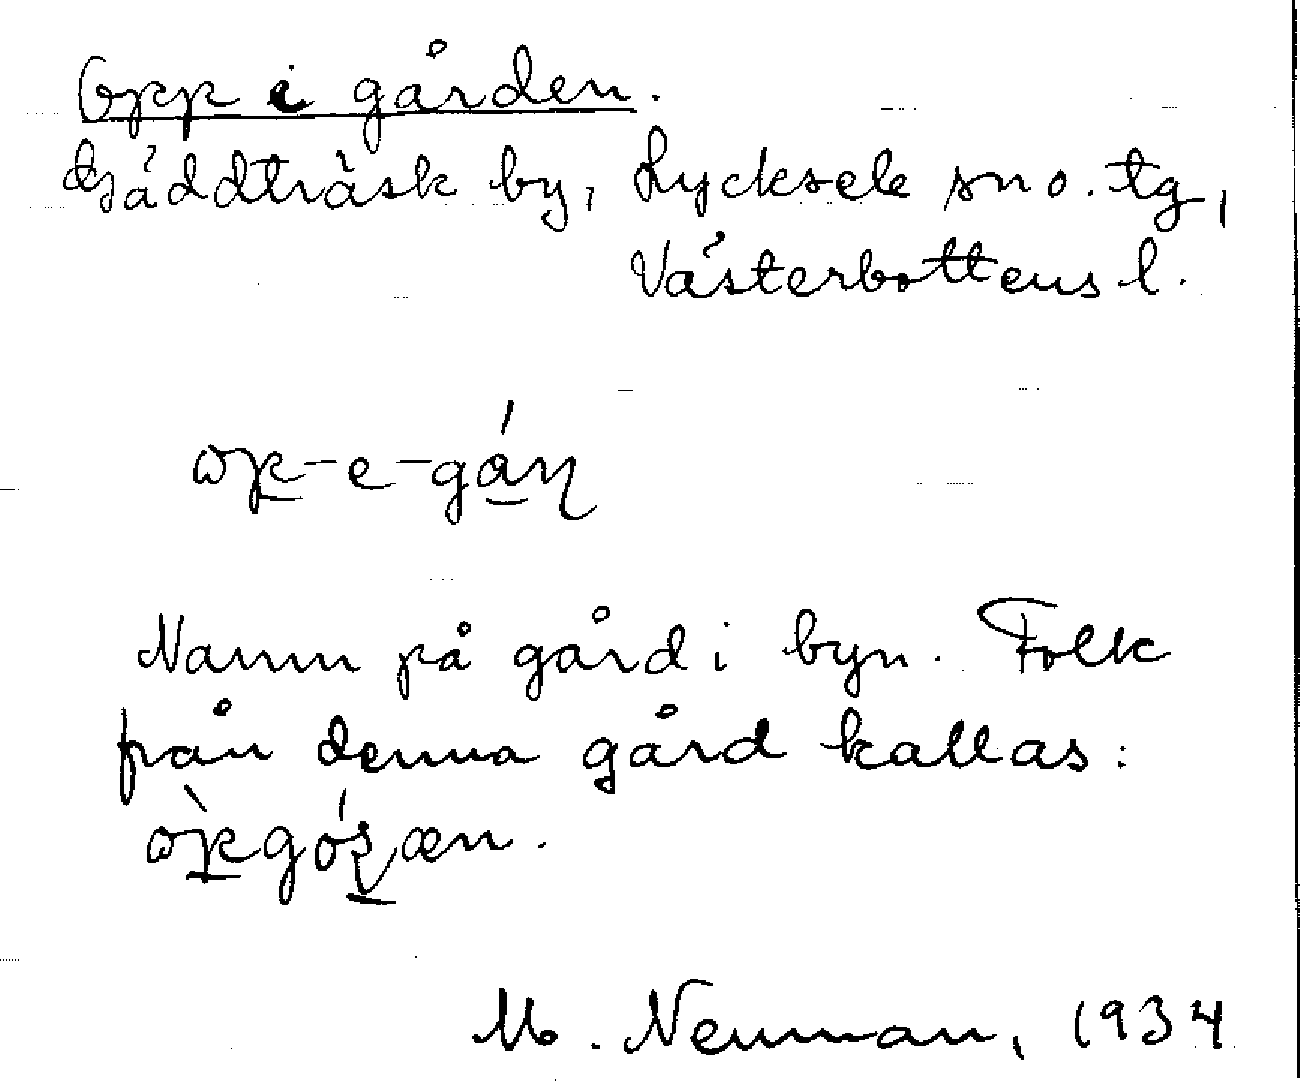 Opp i gården.
Gäddträsk by, Lycksele sn o. tg,
Västerbottens l.
ωp̲-e-gá̲ɳ
Namn på gård i byn. Folk
från denna gård kallas:
ὼp̲gó æn.
M. Neuman, 1934